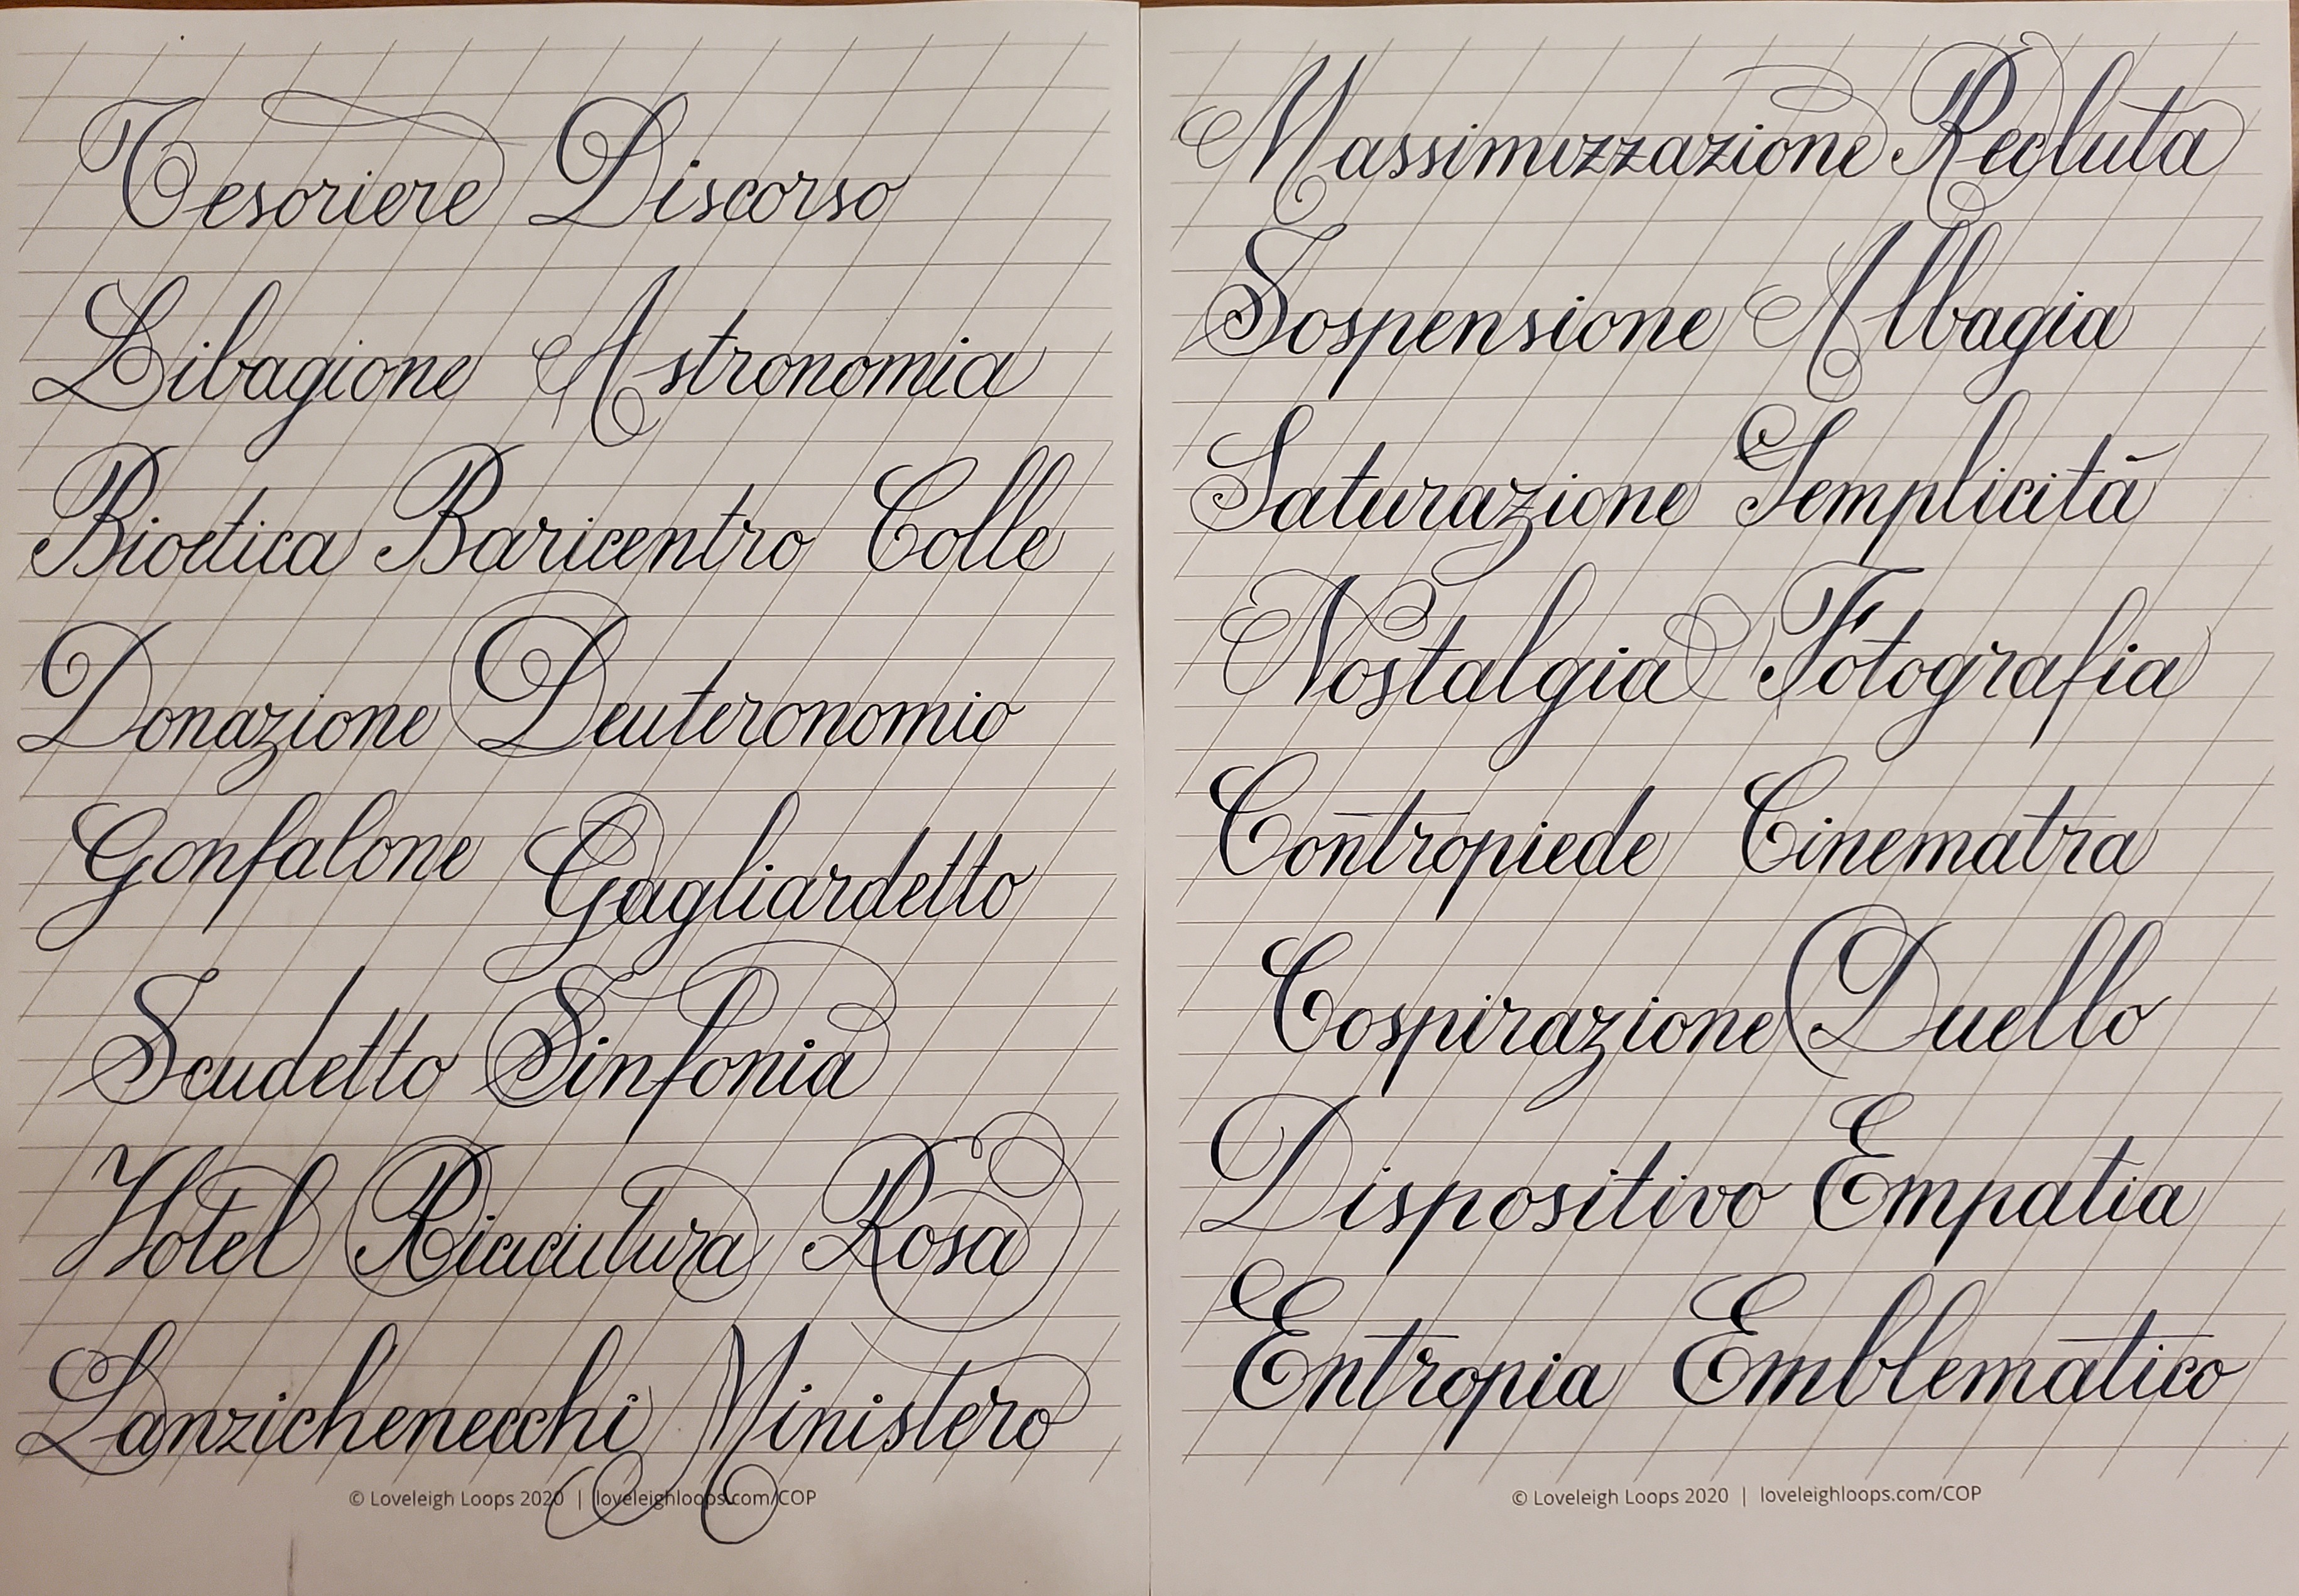 Tesoriere Discorso
Libagione Astronomia
Bioetica Baricentro Colle
Donazione Deuteronomio
Gonfalone Gagliardetto
Scudetto Sinfonia
Hotel Rosa
Lanzichenecchi Ministero
© Loveleigh Loops 2020 | loveleighloops.com/COP
Massimizzazione Recluta
Sospensione Albagia
Saturazione Semplicità
Nostalgia Fotografia
Contropiede Cinematra
Cospirazione Duello
Dispositivo Empatia
Entropia Emblematico
© Loveleigh Loops 2020 | loveleighloops.com/COP